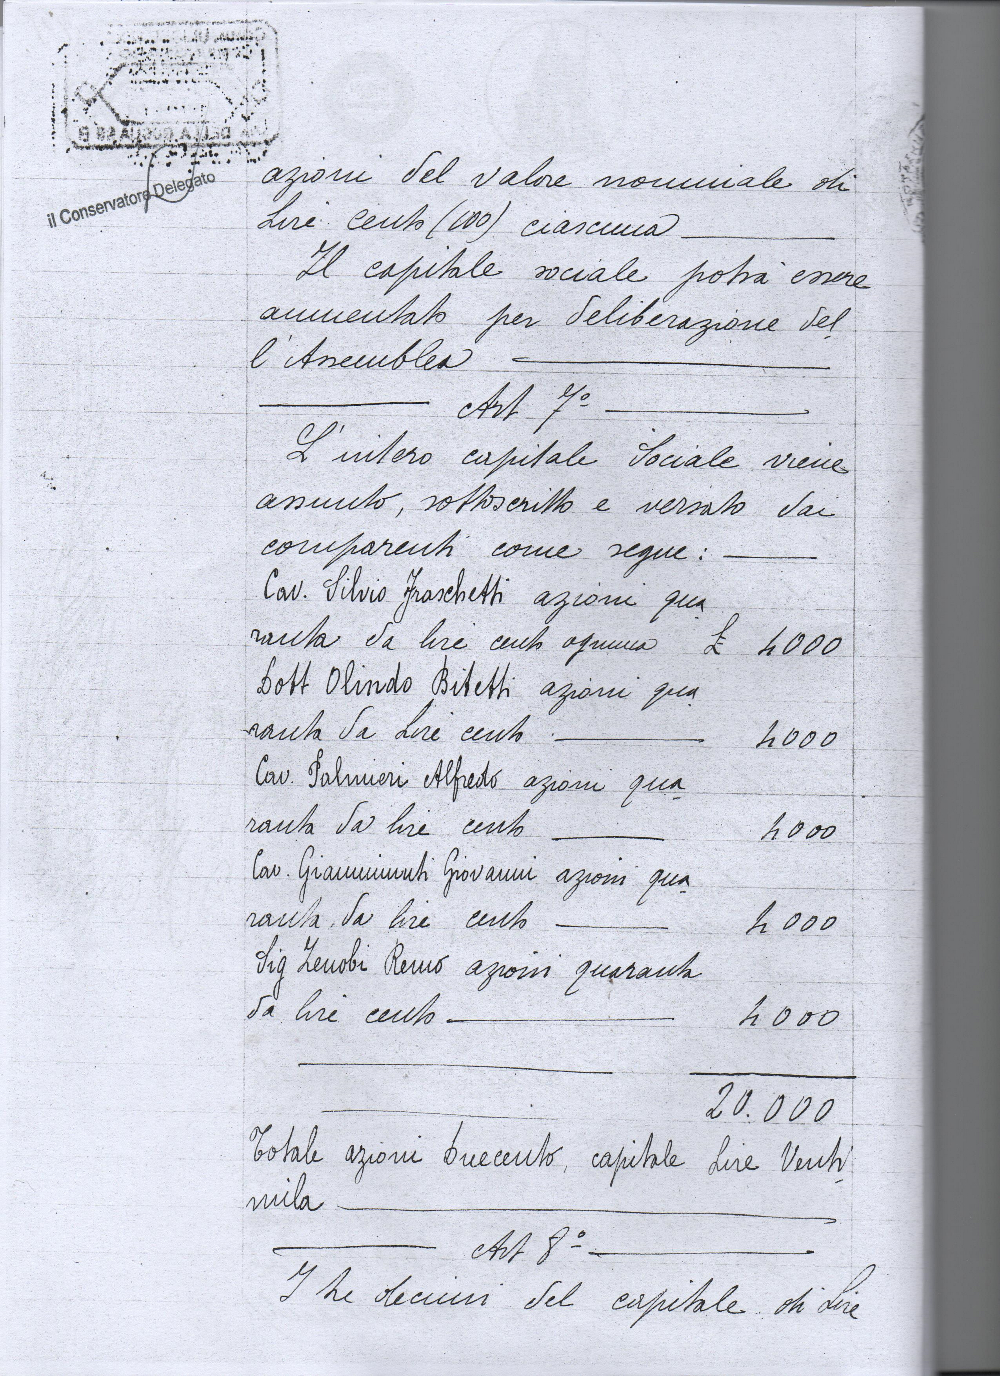 il Conservatore Delegato
azioni del valore nominale di
Lire cento (100) ciascuna
Il capitale sociale potrà essere
aumentato per deliberazione del
l'Assemblea
Art 7º
L'intero capitale Sociale viene
assunto, sottoscritto e versato dai
comparenti come segue:
Cav. Silvio Fraschetti azioni qua
ranta da lire cento ognuna £ 4000
Dott Olindo Bitetti azioni qua
ranta da Lire cento 4000
Cav. Palmieri Alfredo azioni qua
ranta da lire cento 4000
Cav. Giannimuti Giovanni azioni qua
ranta da lire cento 4000
Sig Zenobi Remo azioni quaranta
da lire cento 4000
20.000
Totale azioni Duecento, capitale Lire Venti
mila
Art 8º
I tre decimi del capitale di Lire